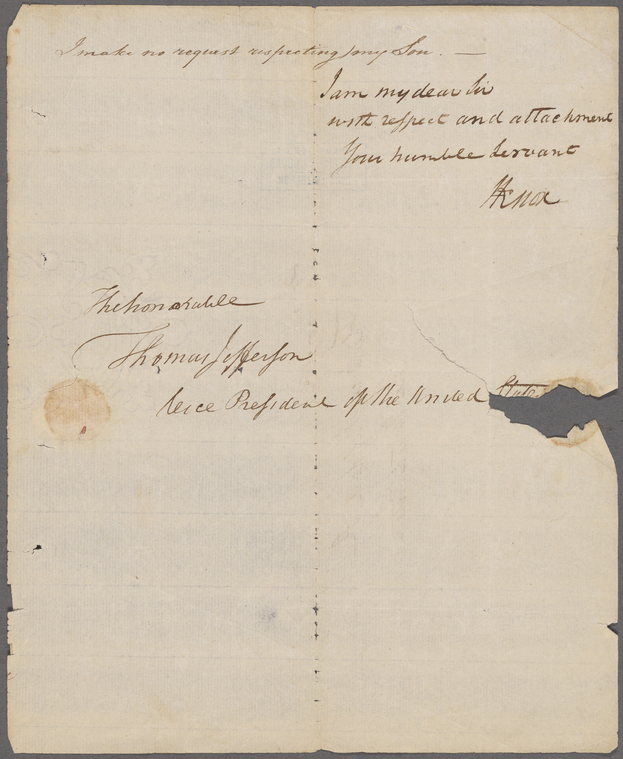 I make no request respecting my Son. —
I am my dear Sir
with respect and attachment
Your humble Servant
HKnox
The honorable
Thomas Jefferson
Vice President of the United States